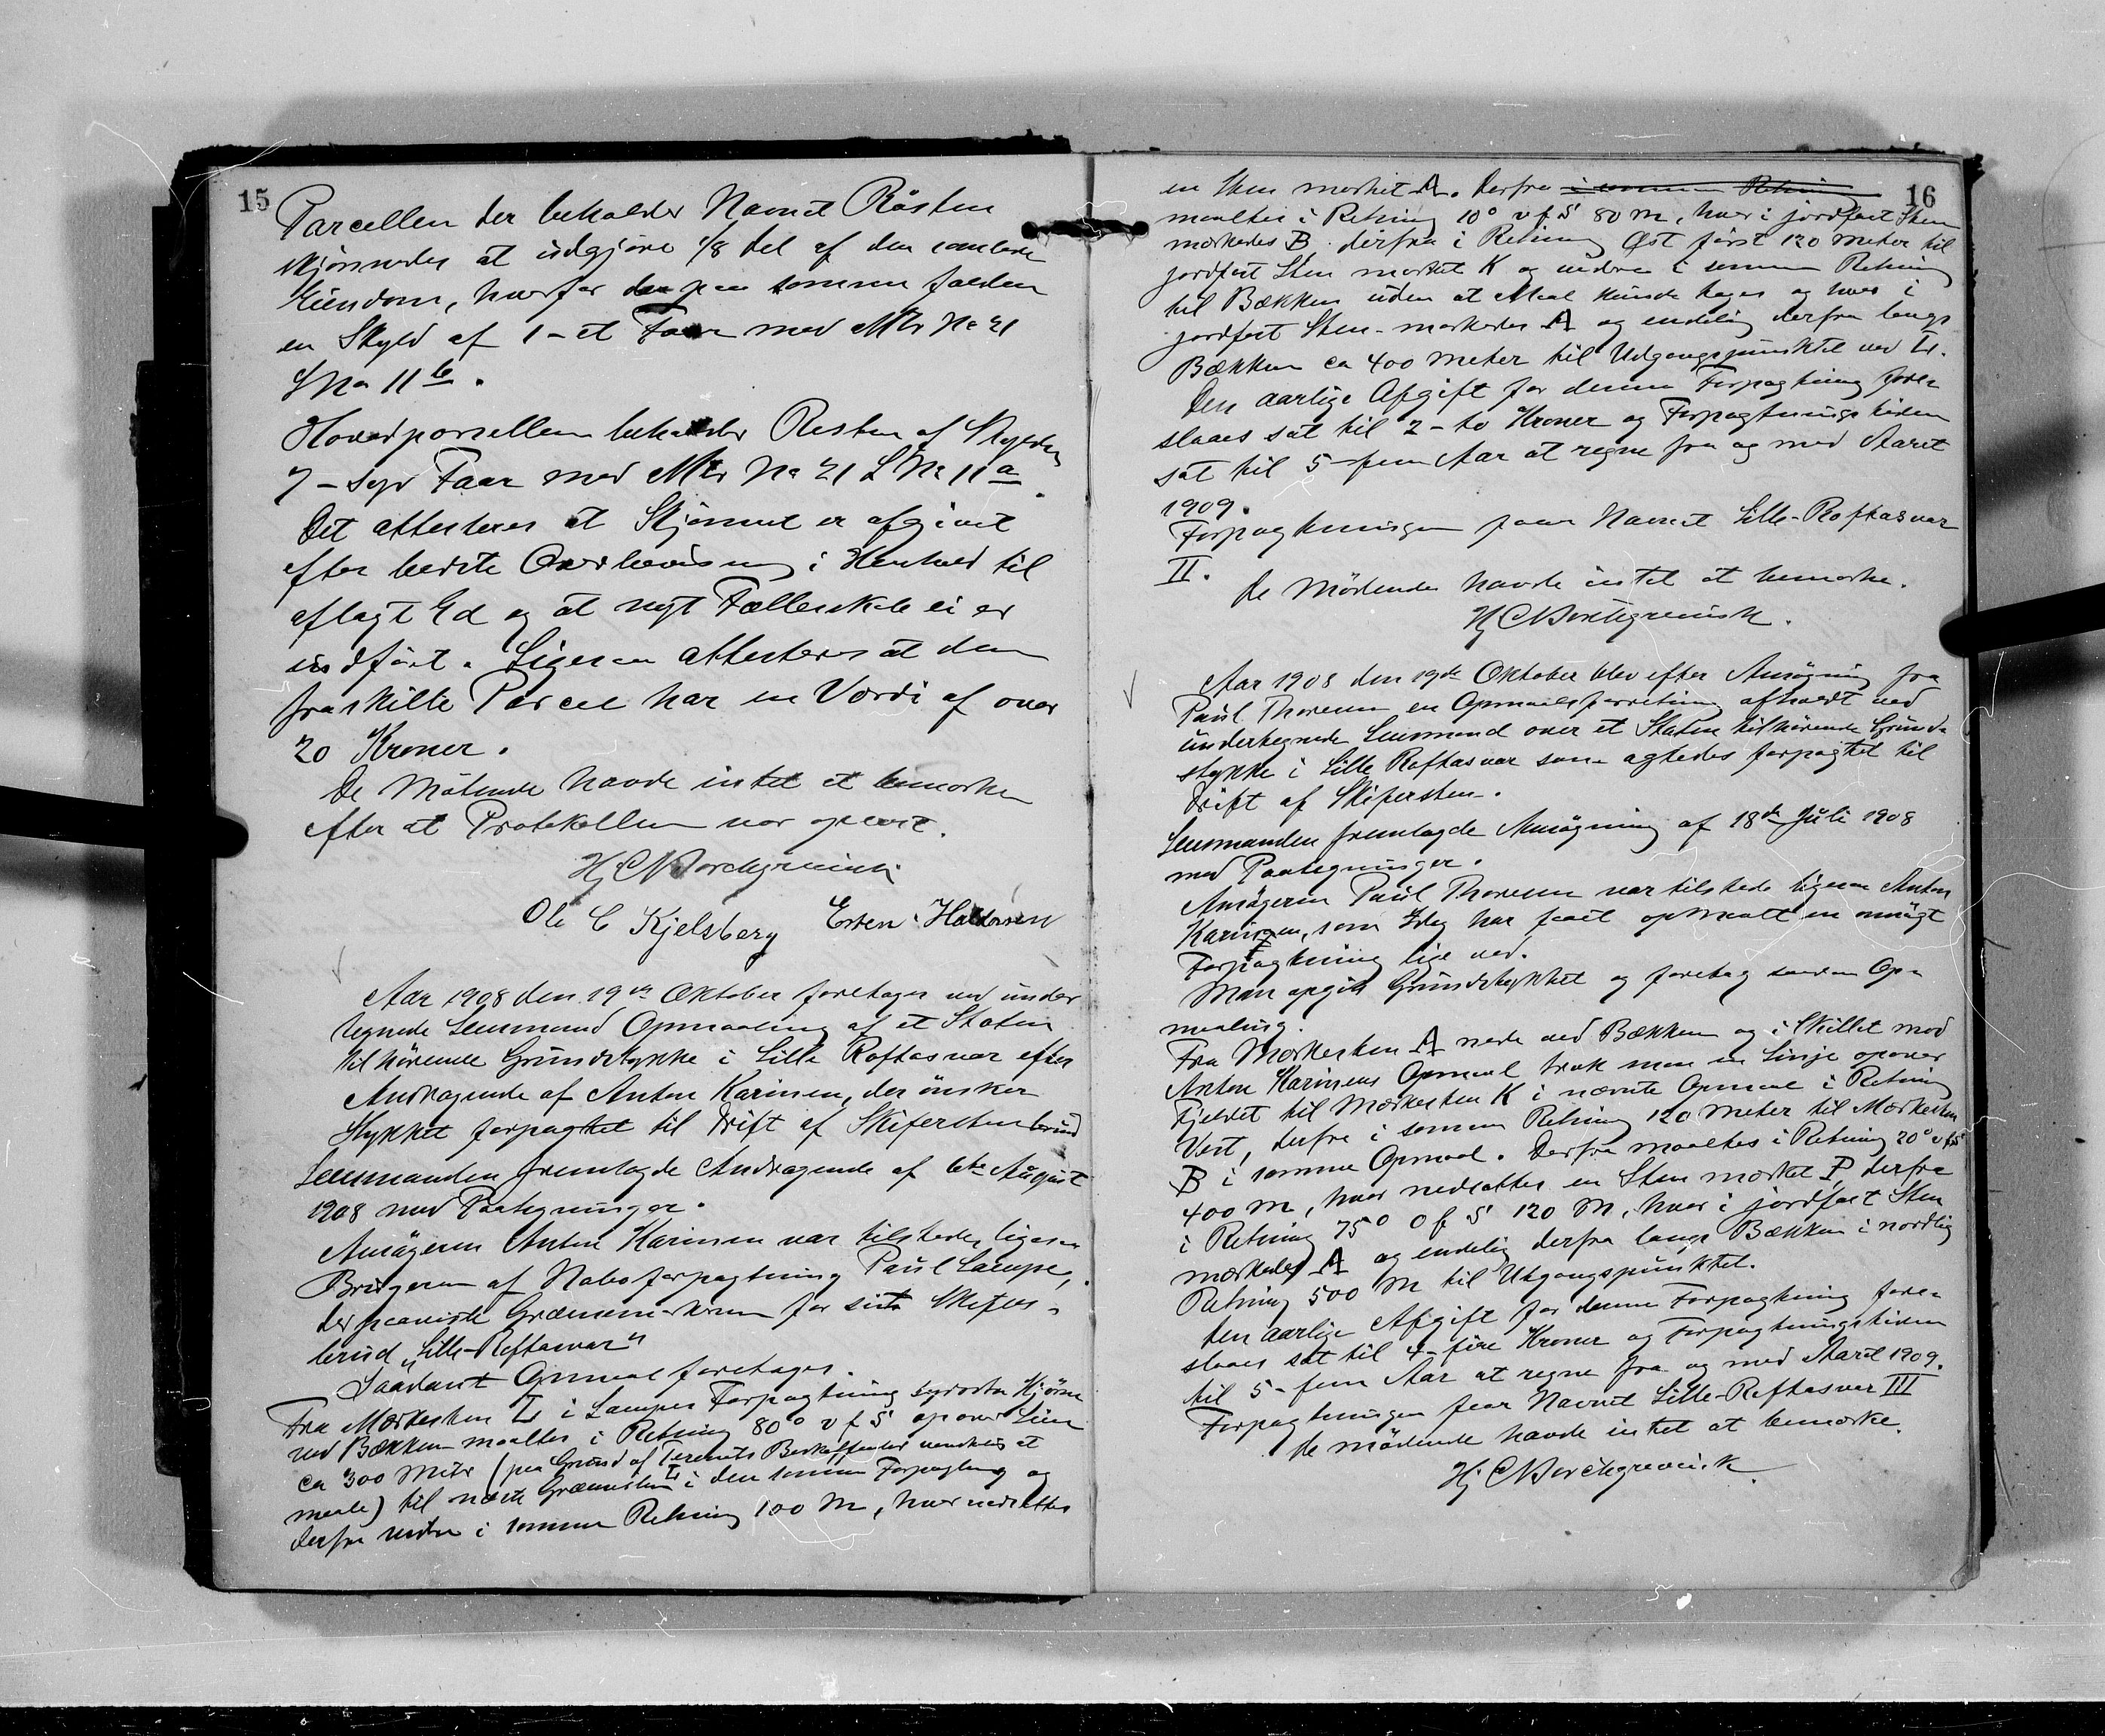 15
Parcellen der beholder Navnet Råsten
skjønnedes at udgjøre 1/8 del af den samlede
Eiendom, hvorfor der paa samme falder
en Skyld af 1 - et Faar med Mtr No 21
L No 11 b.
Hovedparcellen beholder Resten af Skylden
7 - syv Faar med Mtr No 21 L No 11 a.
Det attesteres at Skjønnet er afgivet
efter bedste Overbevisning i Henhold til
aflagt Ed og at nyt Fællesskab ei er
indført. Ligesaa attesteres at den
fraskilte Parcel har en Værdi af over
20 Kroner.
De Mødende havde intet at bemærke
efter at Protokollen var oplæst.
Hj C Borchgrevink
Ole C Kjelsberg Esten Haldorsen
Aar 1908 den 19de Oktober foretages ved under
tegnede Lensmand Opmaaling af et Staten
tilhørende Grundstykke i Lille Raftasvar efter
Andragende af Anton Karinen, der ønsker
Stykket forpagtet til Drift af Skifersten brud
Lensmanden fremlagde Andragende af 6te August
1908 med Paategninger.
Ansøgeren Anton Karinen var tilstede, ligesaa
Brugeren af Naboforpagtning Paul Lampe,
der paaviste Grænsemærkerne for sit Skifer-
brud "Lille-Reftasvar"
Saadant Opmaal foretages.
Fra Mærkesten L i Lampes Forpagtning sydøstre Hjørne
ved Bækken maaltes i Retning 80° v f S opover Lien
ca 300 Meter (paa Grund af Terrænets Beskaffenhed vanskelig at
maale) til næste Grænsesten L i den samme Forpagtning og
derfra videre i samme Retning 100 M, hvor nedsattes
16
en Sten mærket A. Derfra i samme Retning
maaltes i Retning 10° v f S 80 m, hvor i jordfast Sten
mærkedes B. derfra i Retning Øst først 120 meter til
jordfast Sten mærket K og videre i samme Retning
til Bækken uden at Maal kunde tages og hvor i
jordfast Sten mærkedes A og endelig derfra langs
Bækken ca 400 meter til Udgangspunktet ved L.
Den aarlige Afgift for denne Forpagtning fore-
slaaes sat til 2 - to Kroner og Forpagtningstiden
sat til 5 - fem Aar at regne fra og med Aaret
1909.
Forpagtningen faar Navnet Lille-Raftasvar
II.
De Mødende havde intet at bemærke.
Hj C Borchgrevink.
Aar 1908 den 19de Oktober blev efter Ansøgning fra
Paul Thoresen en Opmaalsforretning afholdt ved
undertegnede Lensmand over et Staten tilhørende Grund-
stykke i Lille Raftasvar som agtedes forpagtet til
Drift af Skifersten.
Lensmanden fremlagde Ansøgning af 18de Juli 1908
med Paategninger.
Ansøgeren Paul Thoresen var tilstede ligesaa Anton
Karinen, som idag har faaet opmaalt en ansøgt
Forpagtning lige ved.
Man opgik Grundstykket og foretog saadan Op-
maaling.
Fra Mærkesten A nede ved Bækken og i Skillet mod
Anton Karinens Opmaal trak man en Linje opover
Fjeldet til Mærkesten K i nævnte Opmaal i Retning
Vest, derfra i samme Retning 120 Meter til Mærkesten
B i samme Opmaal. Derfra maaltes i Retning 20° v f S
400 m, hvor nedsattes en Sten mærket P, derfra
i Retning 75° O f S 120 M, hvor i jordfast Sten
mærkedes A og endelig derfra langs Bækken i nordlig
Retning 500 M til Utgangspunktet.
Den aarlige Afgift for denne Forpagtning fore-
slaaes sat til 4 - fire Kroner og Forpagtningstiden
til 5 - fem Aar at regne fra og med Aaret 1909.
Forpagtningen faar Navnet Lille-Reftasvar III
De mødende havde intet at bemærke.
Hj C Borchgrevink